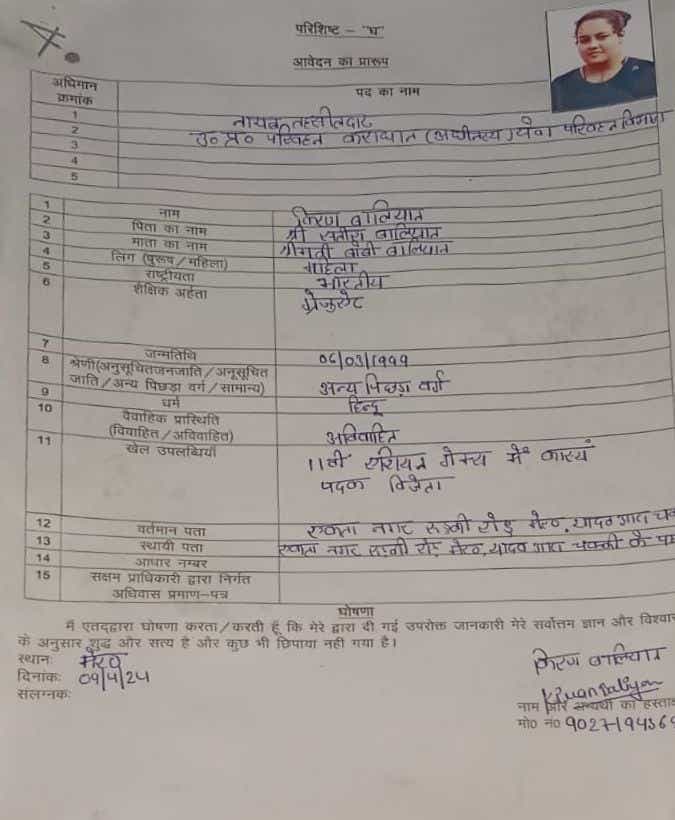 परिशिष्ट - "घ"
आवेदन का प्रारूप
अधिमान क्रमांक पद का नाम
1 नायब तहसीलदार
2 उ० प्र० परिवहन कराधान (अधीनस्थ) सेवा परिवहन विभाग
3
4
5
1 नाम किरण बालियान
2 पिता का नाम श्री सतीश बालियान
3 माता का नाम श्रीमती बॉबी बालियान
4 लिंग (पुरूष/महिला) महिला
5 राष्ट्रीयता भारतीय
6 शैक्षिक अर्हता ग्रेजुएट
7 जन्मतिथि 06/03/1999
8 श्रेणी(अनुसूचितजनजाति/अनुसूचित
जाति/अन्य पिछड़ा वर्ग/सामान्य) अन्य पिछड़ा वर्ग
9 धर्म हिन्दू
10 वैवाहिक प्रास्थिति
(विवाहित/अविवाहित) अविवाहित
11 खेल उपलब्धियाँ 11वी एशियन गेम्स में कास्यं
पदक विजेता
12 वर्तमान पता एकता नगर रोड़ मेरठ, यादव आटा चक्
13 स्थायी पता एकता नगर रोड़ मेरठ, यादव आटा चक्की के पा
14 आधार नम्बर
15 सक्षम प्राधिकारी द्वारा निर्गत
अधिवास प्रमाण-पत्र
घोषणा
मैं एतद्द्वारा घोषणा करता/करती हूँ कि मेरे द्वारा दी गई उपरोक्त जानकारी मेरे सर्वोत्तम ज्ञान और विश्वास
के अनुसार शुद्ध और सत्य है और कुछ भी छिपाया नहीं गया है।
स्थानः मेरठ
दिनांकः 09/4/24
संलग्नकः
किरण बालियान
Kiran Baliyan
नाम और अभ्यर्थी का हस्ताक्ष
मो0 नं0 902719436